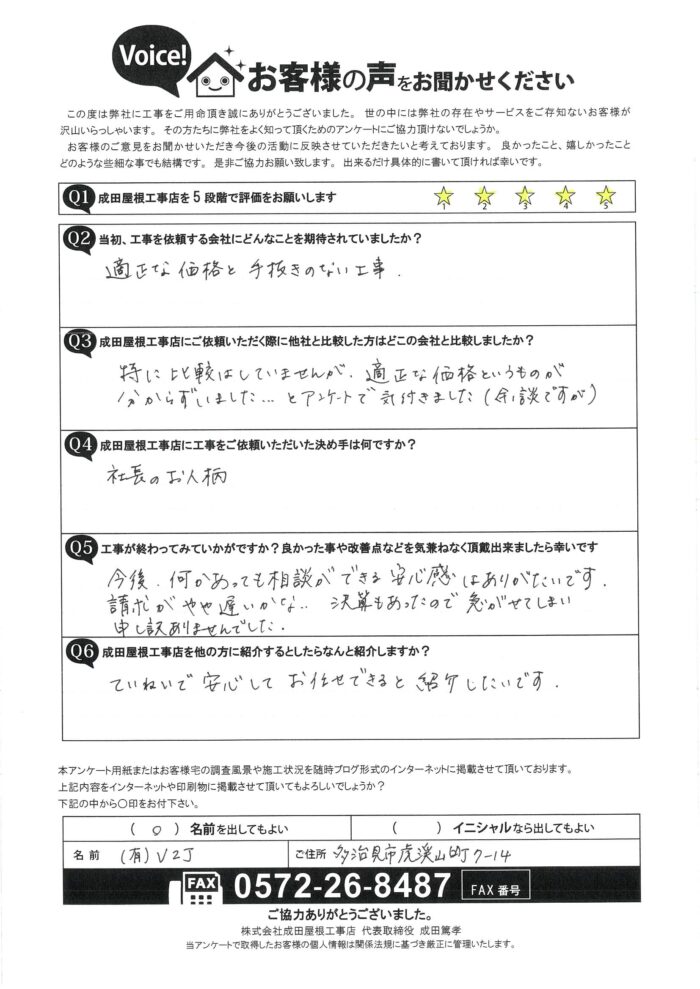 Voice!
お客様の声をお聞かせください
この度は弊社に工事をご用命頂き誠にありがとうございました。 世の中には弊社の存在やサービスをご存知ないお客様が
沢山いらっしゃいます。 その方たちに弊社をよく知って頂くためのアンケートにご協力頂けないでしょうか。
お客様のご意見をお聞かせいただき今後の活動に反映させていただきたいと考えております。 良かったこと、嬉しかったこと
どのような些細な事でも結構です。 是非ご協力お願い致します。 出来るだけ具体的に書いて頂ければ幸いです。
Q1 成田屋根工事店を5段階で評価をお願いします
1 2 3 4 5
Q2 当初、工事を依頼する会社にどんなことを期待されていましたか？
適正な価格と手抜きのない工事.
Q3 成田屋根工事店にご依頼いただく際に他社と比較した方はどこの会社と比較しましたか？
特に比較はしていませんが、適正な価格というものが
分からずいました…とアンケートで気付きました(余談ですが)
Q4 成田屋根工事店に工事をご依頼いただいた決め手は何ですか？
社長のお人柄
Q5 工事が終わってみていかがですか？良かった事や改善点などを気兼ねなく頂戴出来ましたら幸いです
今後、何かあっても相談ができる安心感はありがたいです.
請求がやや遅いかな.. 決算もあったので急がせてしまい
申し訳ありませんでした.
Q6 成田屋根工事店を他の方に紹介するとしたらなんと紹介しますか？
ていねいで安心してお任せできると紹介したいです.
本アンケート用紙またはお客様宅の調査風景や施工状況を随時ブログ形式のインターネットに掲載させて頂いております。
上記内容をインターネットや印刷物に掲載させて頂いてもよろしいでしょうか？
下記の中から〇印をお付下さい。
( ○ ) 名前を出してもよい ( ) イニシャルなら出してもよい
名前 (有)V2J ご住所 多治見市虎渓山町7-14
FAX 0572-26-8487 FAX番号
ご協力ありがとうございました。
株式会社成田屋根工事店 代表取締役 成田篤孝
当アンケートで取得したお客様の個人情報は関係法規に基づき厳正に管理いたします。